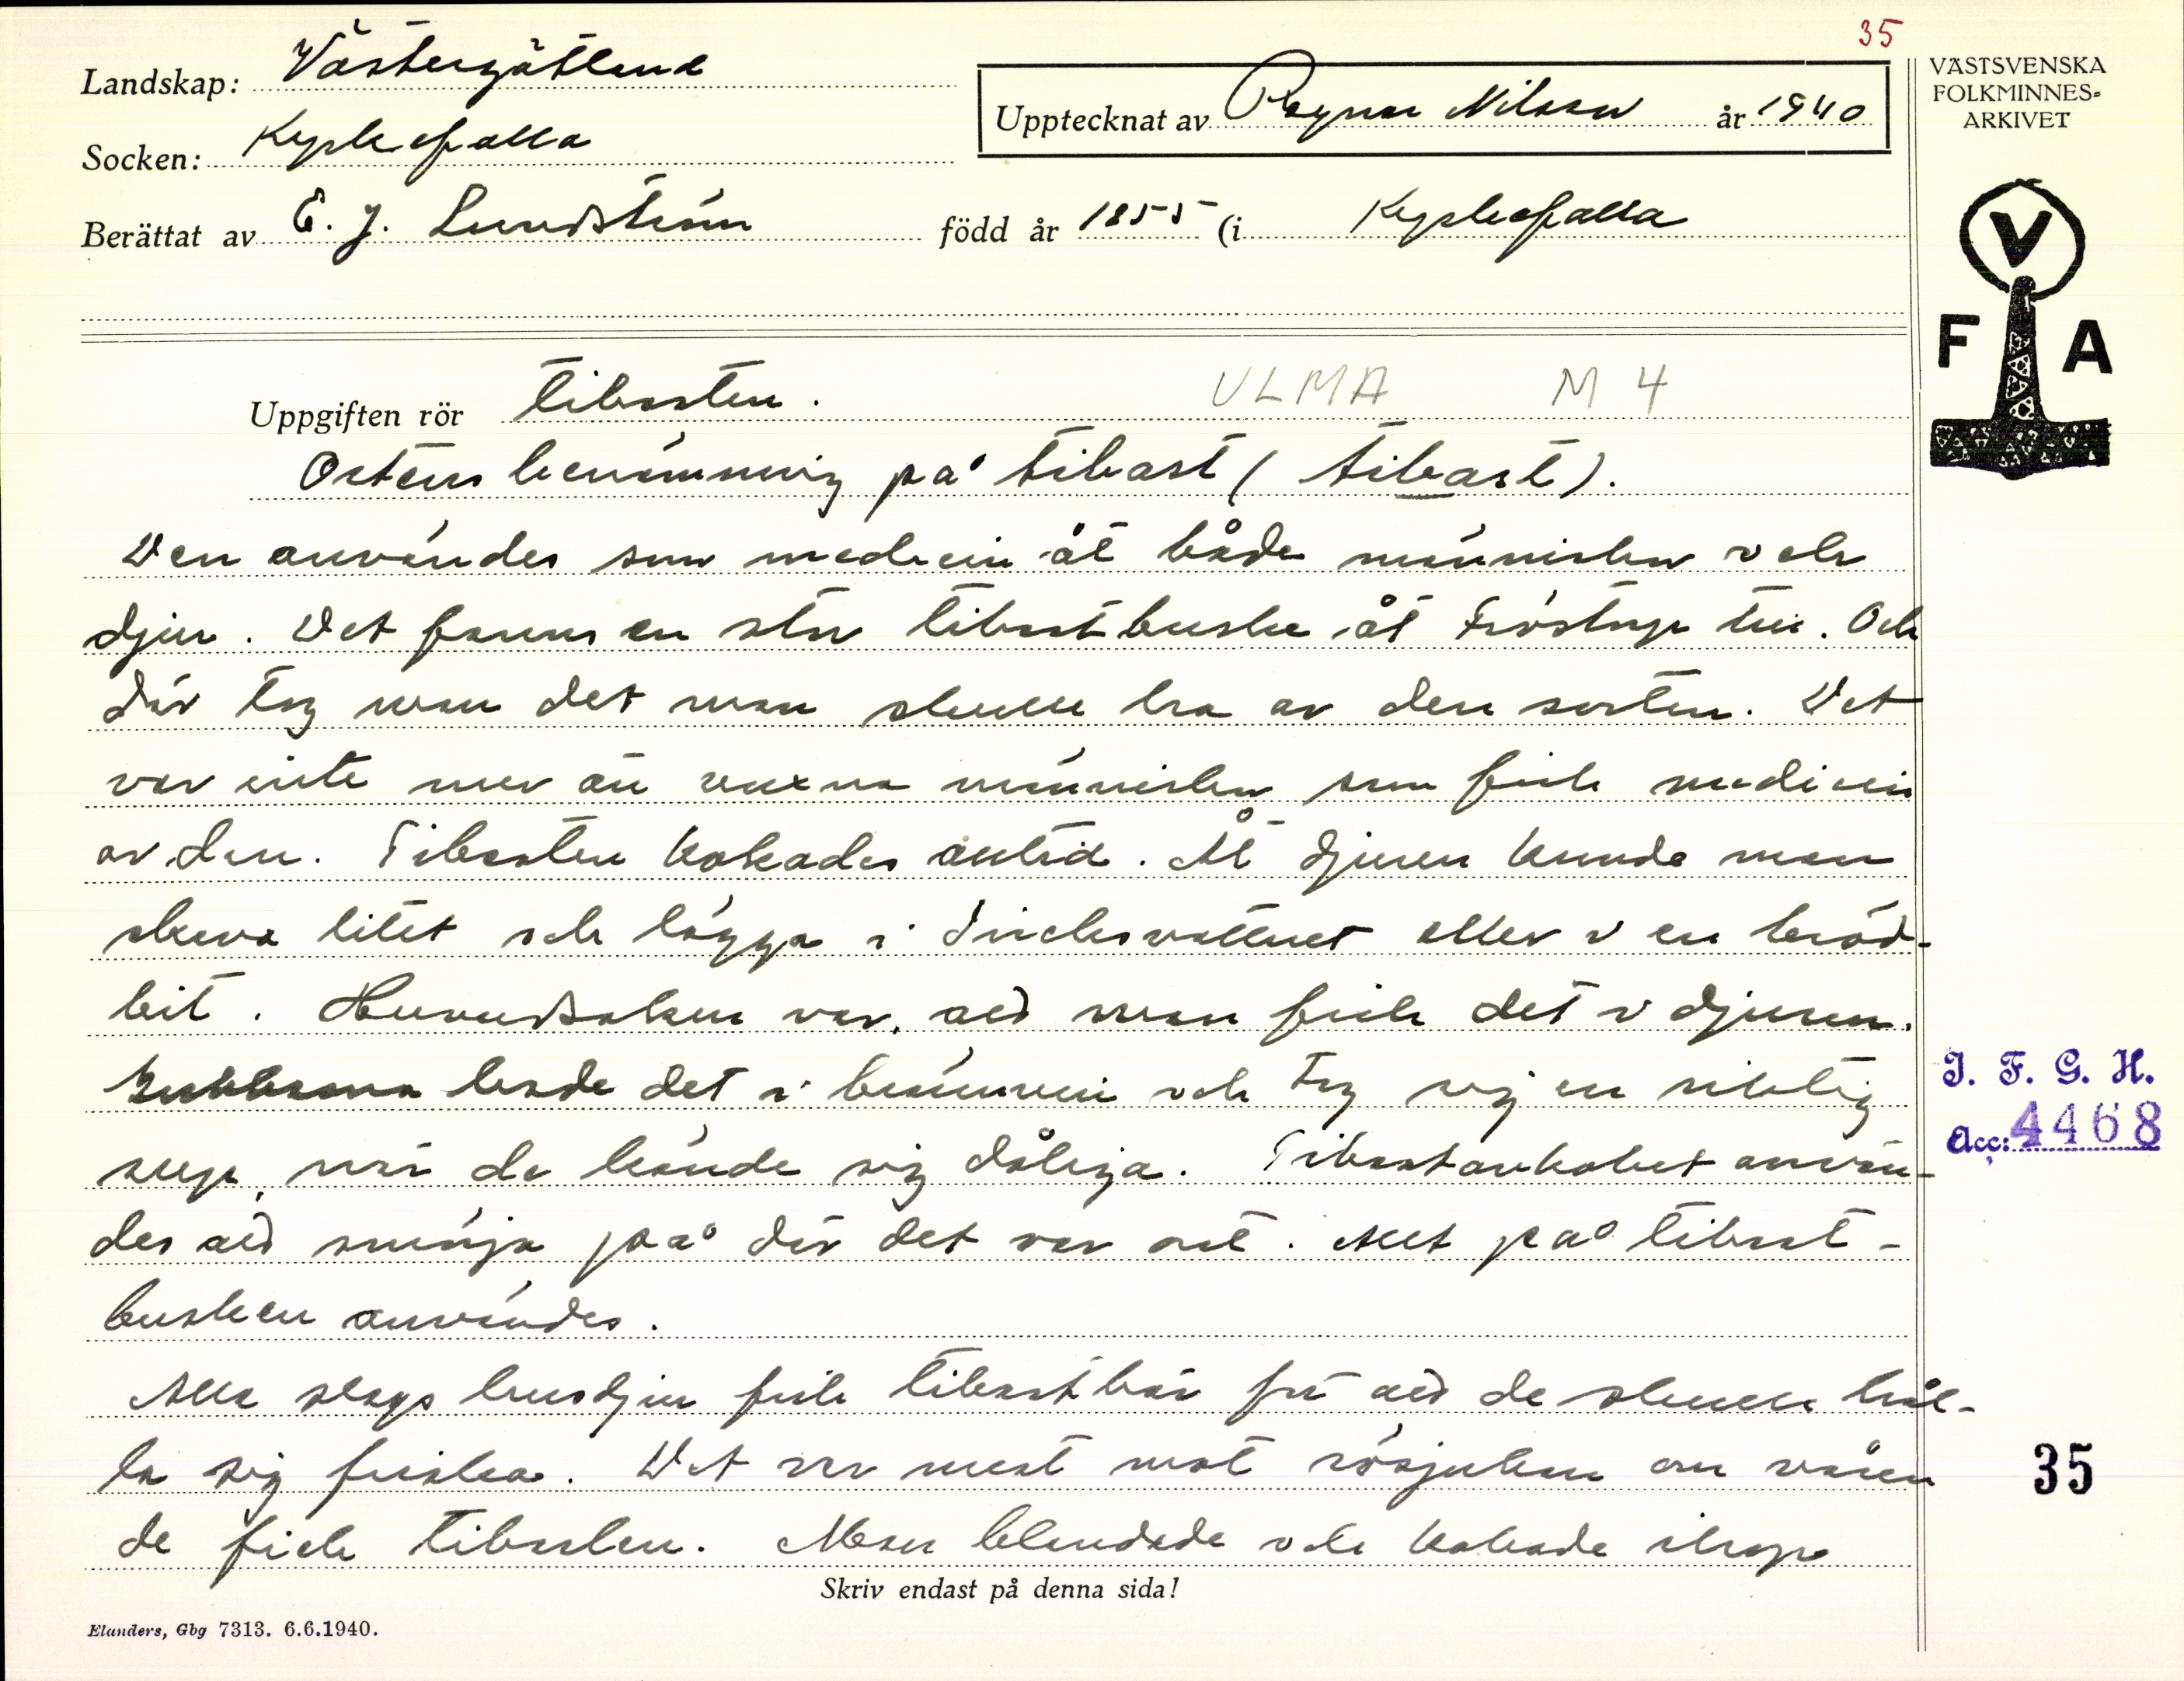 35
Landskap: Västergötland
Socken: Kyrkefalla
Upptecknat av Ragnar Nilsson år 1940
Berättat av E. J. Lundström född år 1855 (i Kyrkefalla
VÄSTSVENSKA
FOLKMINNES-
ARKIVET
V
F A
Uppgiften rör tibasten. ULMA M 4
Ortens benämning på tibast (tibast).
Den användes som medicin åt både människor och
djur. Det fanns en stor tibastbuske åt Fröstorp till. Och
där tog man det man skulle ha av den sorten. Det
var inte mer än vuxna människor som fick medicin
av den. Tibasten kokades alltid. Åt djuren kunde man
skava litet och lägga i dricksvattnet eller i en bröd-
bit. Huvudsaken var, att man fick det i djuren.
Gubbarna lade det i brännvin och tog sig en riktig
sup, när de kände sig dåliga. Tibastavkoket använ-
des att smörja på där det var ont. Allt på tibast-
busken användes.
Alla slags husdjur fick tibastbär för att de skulle hål-
la sig friska. Det var mest mot rösjukan om våren
de fick tibasten. Man blandade och kokade ihop
I. F. G. H.
Acc: 4468
35
Skriv endast på denna sida!
Elanders, Gbg 7313. 6.6.1940.